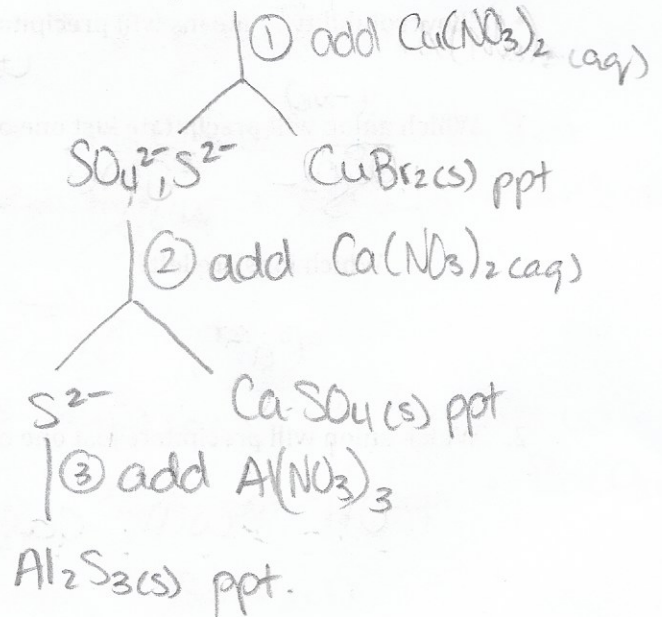 ① add Cu(NO₃)₂ (aq)
SO₄²⁻, S²⁻ CuBr₂(s) ppt
② add Ca(NO₃)₂(aq)
S²⁻ CaSO₄(s) ppt
③ add Al(NO₃)₃
Al₂S₃(s) ppt.